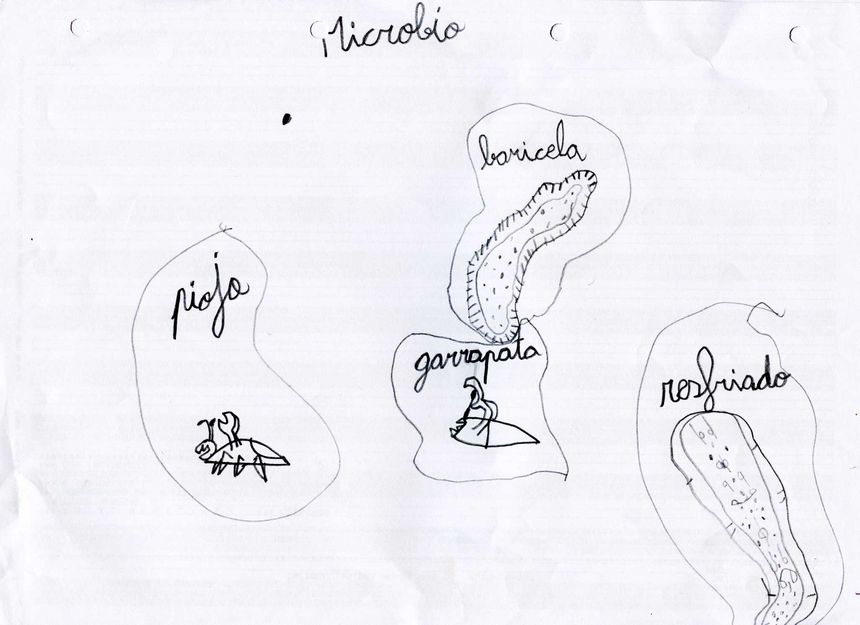 Microbio
baricela
piojo
garrapata
resfriado